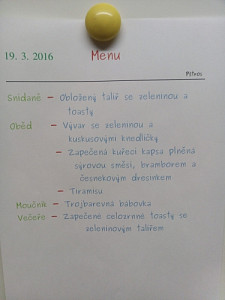 19. 3. 2016 Menu
Snídaně – Obložený talíř se zeleninou a
toasty
Oběd – Vývar se zeleninou a
kuskusovými knedlíčky
– Zapečená kuřecí kapsa plněná
sýrovou směsí, bramborem a
česnekovým dresinkem
– Tiramisu
Moučník – Trojbarevná bábovka
Večeře – Zapečené celozrnné toasty se
zeleninovým talířem